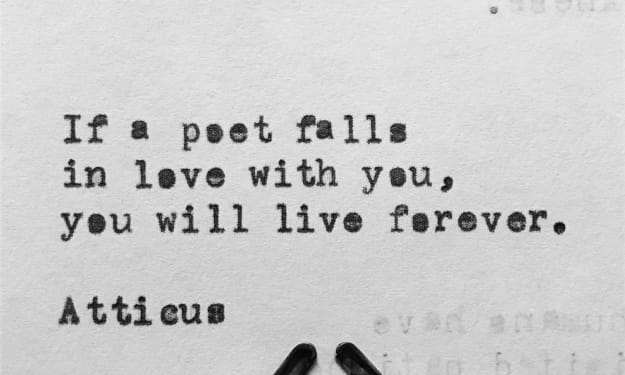 If a poet falls
in love with you,
you will live forever.
Atticus